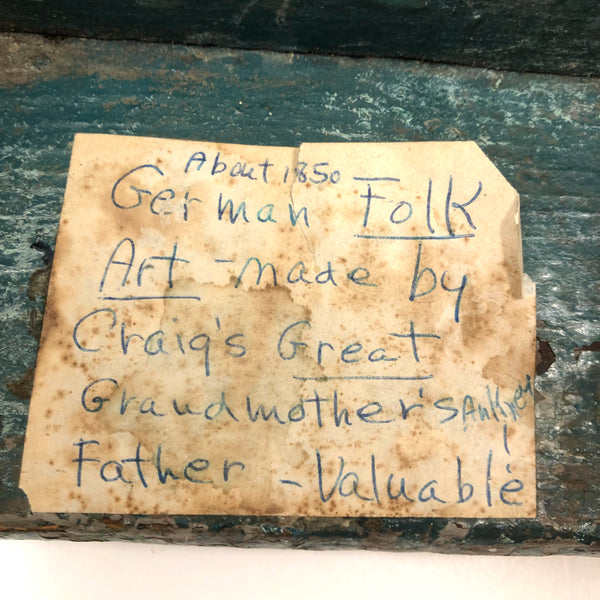 About 1850
German Folk
Art - made by
Craig's Great
Grandmother's Ankney
Father - Valuable!